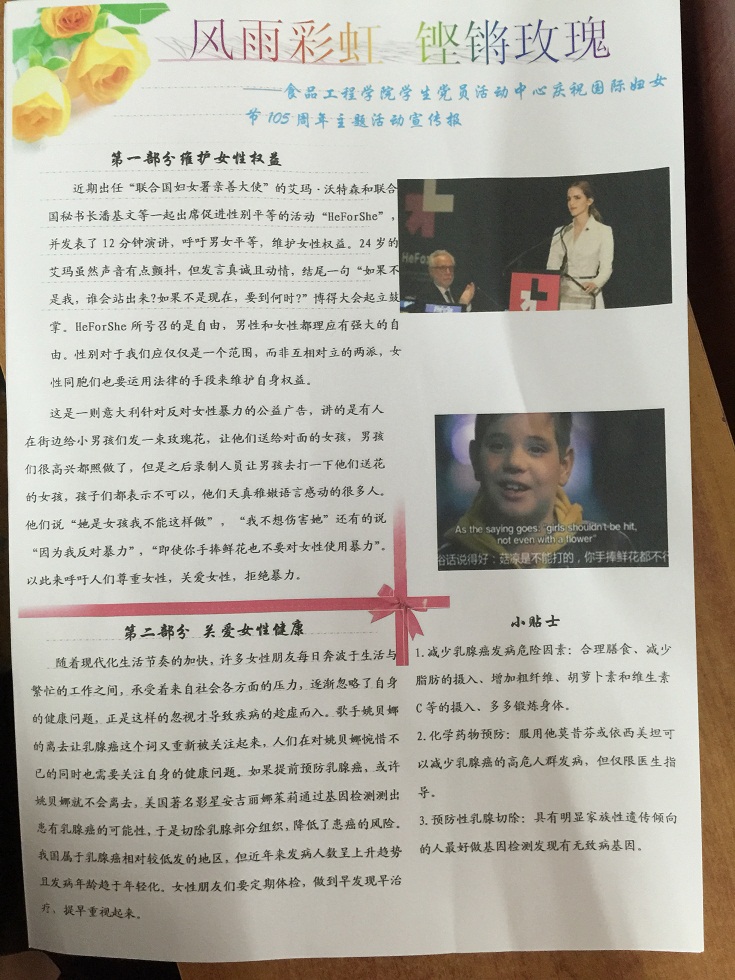 风雨彩虹 铿锵玫瑰
——食品工程学院学生党员活动中心庆祝国际妇女
节 105 周年主题活动宣传报
第一部分维护女性权益
近期出任“联合国妇女署亲善大使”的艾玛·沃特森和联合
国秘书长潘基文等一起出席促进性别平等的活动“HeForShe”，
并发表了 12 分钟演讲，呼吁男女平等，维护女性权益。24 岁的
艾玛虽然声音有点颤抖，但发言真诚且动情，结尾一句“如果不
是我，谁会站出来?如果不是现在，要到何时?”博得大会起立鼓
掌。HeForShe 所号召的是自由，男性和女性都理应有强大的自
由。性别对于我们应仅仅是一个范围，而非互相对立的两派，女
性同胞们也要运用法律的手段来维护自身权益。
HeFor
这是一则意大利针对反对女性暴力的公益广告，讲的是有人
在街边给小男孩们发一束玫瑰花，让他们送给对面的女孩，男孩
们很高兴都照做了，但是之后录制人员让男孩去打一下他们送花
的女孩，孩子们都表示不可以，他们天真稚嫩语言感动的很多人。
他们说“她是女孩我不能这样做”，“我不想伤害她”还有的说
“因为我反对暴力”，“即使你手捧鲜花也不要对女性使用暴力”。
以此来呼吁人们尊重女性，关爱女性，拒绝暴力。
As the saying goes: "girls shouldn't be hit,
not even with a flower"
俗话说得好：菇凉是不能打的，你手捧鲜花都不行
第二部分 关爱女性健康
随着现代化生活节奏的加快，许多女性朋友每日奔波于生活与
繁忙的工作之间，承受着来自社会各方面的压力，逐渐忽略了自身
的健康问题，正是这样的忽视才导致疾病的趁虚而入。歌手姚贝娜
的离去让乳腺癌这个词又重新被关注起来，人们在对姚贝娜惋惜不
已的同时也需要关注自身的健康问题。如果提前预防乳腺癌，或许
姚贝娜就不会离去，美国著名影星安吉丽娜茱莉通过基因检测测出
患有乳腺癌的可能性，于是切除乳腺部分组织，降低了患癌的风险。
我国属于乳腺癌相对较低发的地区，但近年来发病人数呈上升趋势
且发病年龄趋于年轻化。女性朋友们要定期体检，做到早发现早治
疗，提早重视起来。
小贴士
1.减少乳腺癌发病危险因素：合理膳食、减少
脂肪的摄入、增加粗纤维、胡萝卜素和维生素
C 等的摄入、多多锻炼身体。
2.化学药物预防：服用他莫昔芬或依西美坦可
以减少乳腺癌的高危人群发病，但仅限医生指
导。
3.预防性乳腺切除：具有明显家族性遗传倾向
的人最好做基因检测发现有无致病基因。